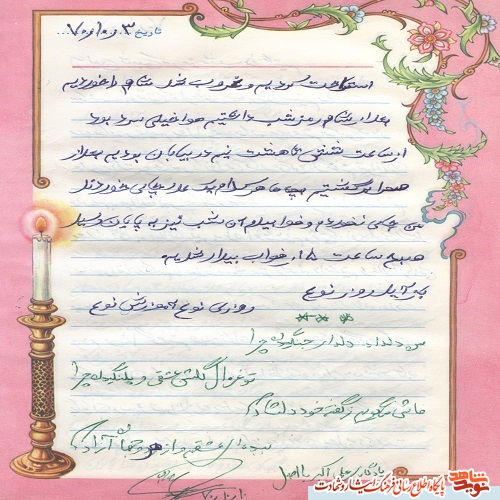 تاریخ ۷۰/۰۱/۰۳...
استراحت کردیم و غروب شد شام را خوردیم
بعد از شام رزم شب داشتیم هوا خیلی سرد بود
از ساعت شش تا هشت نیم در بیابان بودیم بعد از
صحرا برگشتیم بچه‌ها هر کدام یک عدد چایی خوردند
من چای نخوردم و خوابیدم آن شب نیز به پایان رسید
صبح ساعت ۵ از خواب بیدار شدیم
روز نوع
روزی نوع آموزش نوع
من دلداد دلدار جنگ
تو غزال گلشن عشقی و پلنگ
فاش میگویم و از گفته خود دلشادم
بنده‌ی عشقم و از هر دو جهان آزادم
یادگاری علی اکبر
پایگاه اطلاع رسانی فرهنگ ایثار و شهادت
نوید شاهد